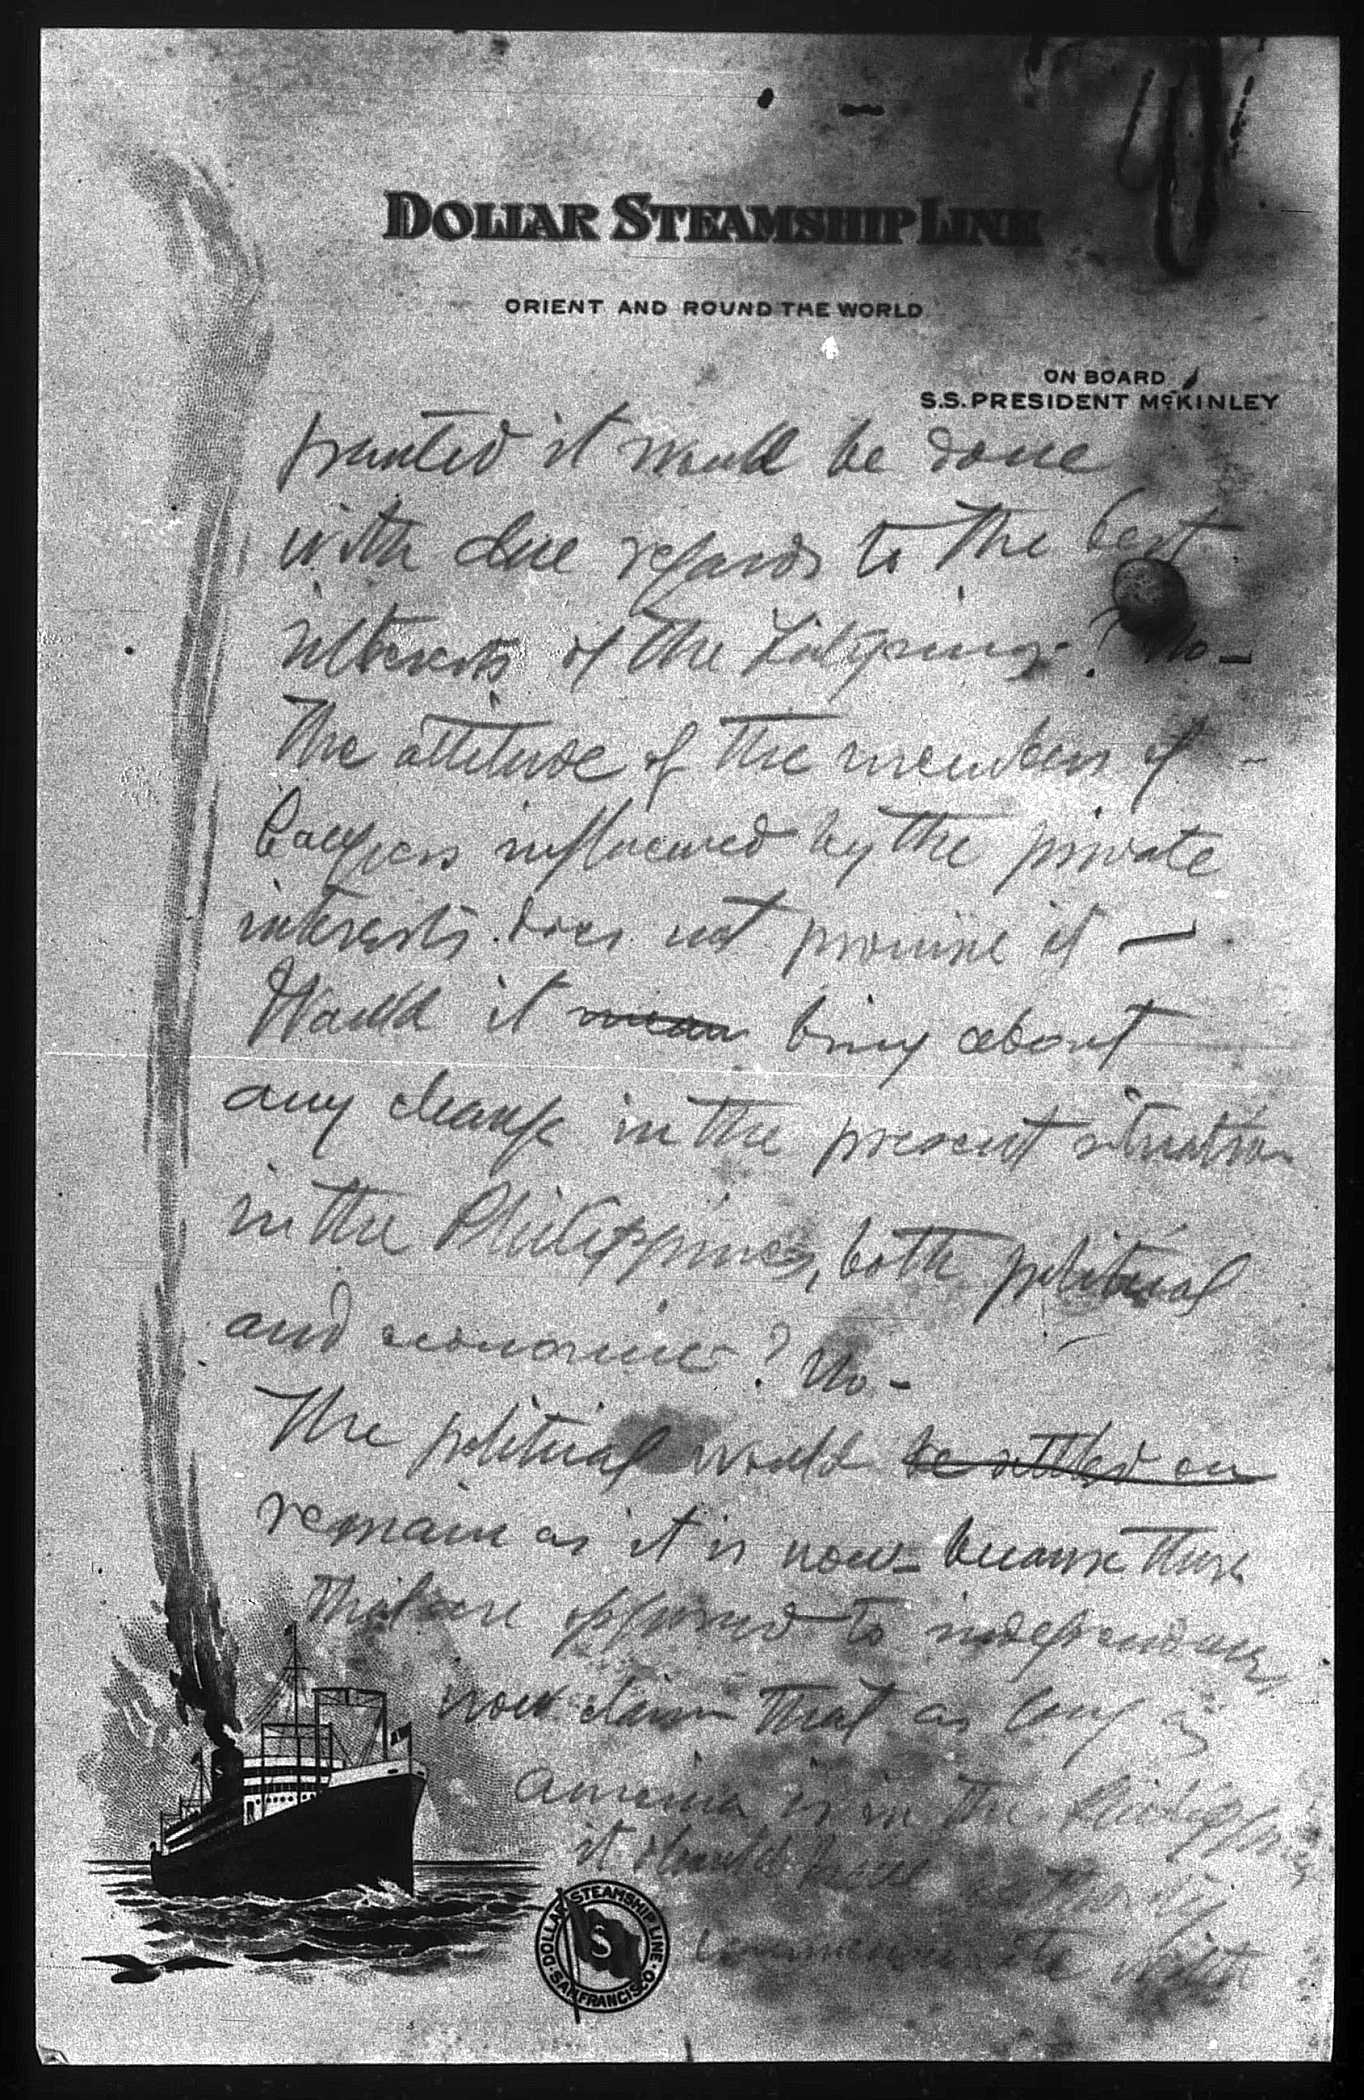 DOLLAR STEAMSHIP LINE
ORIENT AND ROUND THE WORLD
ON BOARD
S.S. PRESIDENT McKINLEY
granted it would be done
with due regards to the best
interests of the Filipinos? No –
The attitude of the members of
Congress influenced by the private
interests does not promise it –
Would it mean bring about
any change in the present situation
in the Philippines, both political
and economic? No –
The political would be settled on
remain as it is now – because those
that are opposed to independence
now claim that as long as
America is in the Philippines
it should have authority
commensurate
DOLLAR STEAMSHIP LINE
S
SAN FRANCISCO